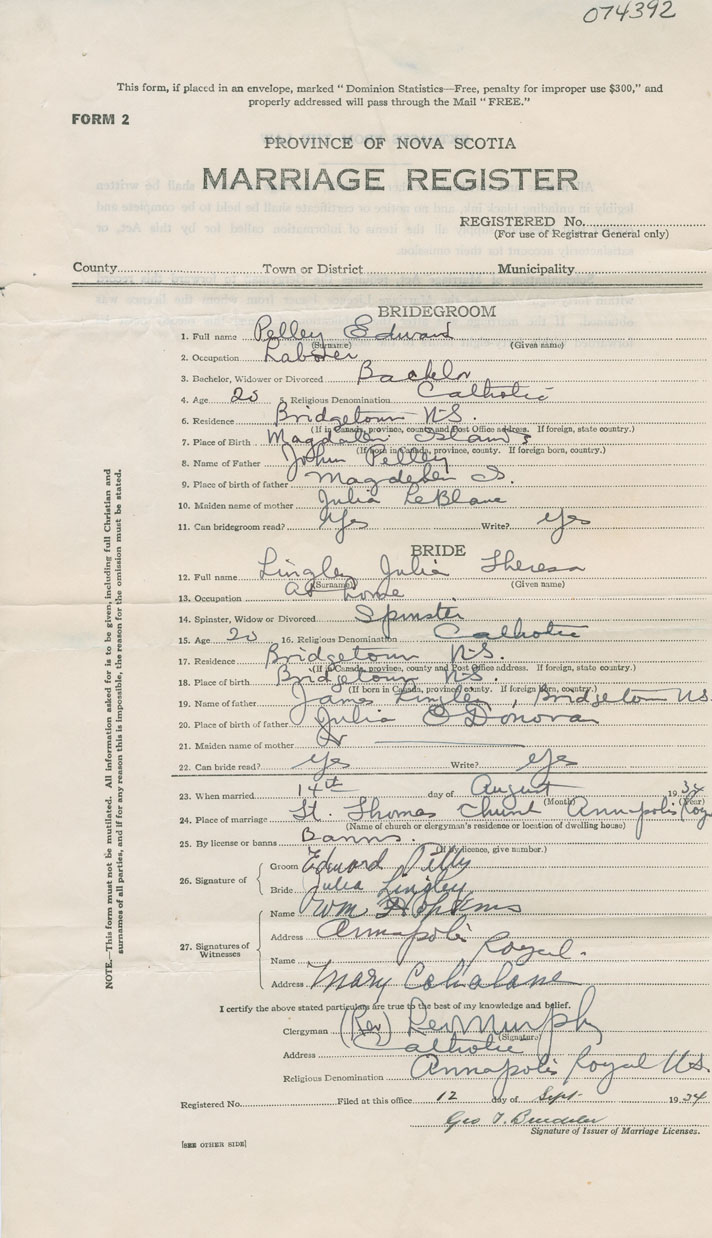 074392
This form, if placed in an envelope, marked "Dominion Statistics—Free, penalty for improper use $300," and
properly addressed will pass through the Mail "FREE."
FORM 2
PROVINCE OF NOVA SCOTIA
MARRIAGE REGISTER
REGISTERED No.
(For use of Registrar General only)
County Town or District Municipality
BRIDEGROOM
1. Full name Pelley Edward
(Surname) (Given name)
2. Occupation Laborer
3. Bachelor, Widower or Divorced Bachelor
4. Age 20 5. Religious Denomination Catholic
6. Residence Bridgetown N-S.
(If in Canada, province, county and Post Office address. If foreign, state country.)
7. Place of Birth Magdalen Islands
(If born in Canada, province, county. If foreign born, country.)
8. Name of Father John Pelley
9. Place of birth of father Magdelen I.
10. Maiden name of mother Julia LeBlanc
11. Can bridegroom read? Yes Write? Yes
BRIDE
12. Full name Lingley Julia Theresa
(Surname) (Given name)
13. Occupation at home
14. Spinster, Widow or Divorced Spinster
15. Age 20 16. Religious Denomination Catholic
17. Residence Bridgetown N-S.
(If in Canada, province, county and Post Office address. If foreign, state country.)
18. Place of birth Bridgetown N-S.
(If born in Canada, province, county. If foreign born, country.)
19. Name of father James Lingley, Bridgetown NS
20. Place of birth of father Julia O'Donovan
21. Maiden name of mother
22. Can bride read? Yes Write? Yes
23. When married 14th day of August 1934
(Month) (Year)
24. Place of marriage St. Thomas Church Annapolis Roy
(Name of church or clergyman's residence or location of dwelling house)
25. By license or banns Banns.
(If by licence, give number.)
26. Signature of
Groom Edward Pelly
Bride Julia Lingley
27. Signatures of Witnesses
Name Wm Hopkins
Address Annapolis Royal.
Name
Address Mary Cahalane
I certify the above stated particulars are true to the best of my knowledge and belief.
Clergyman (Rev) Murphy
(Signature)
Address Catholic
Religious Denomination Annapolis Royal N.S.
Registered No. Filed at this office 12 day of Sept. 1934
Geo T.
Signature of Issuer of Marriage Licenses.
[SEE OTHER SIDE]
NOTE.—This form must not be mutilated. All information asked for is to be given, including full Christian and
surnames of all parties, and if for any reason this is impossible, the reason for the omission must be stated.